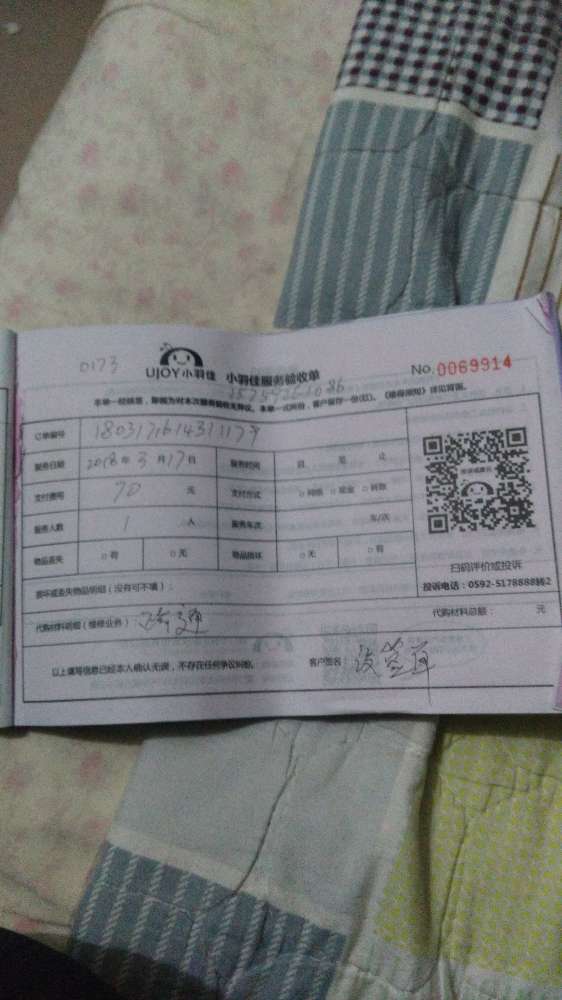 0173
UJOY小羽佳 小羽佳服务验收单 No.0069914
本单一经核签，即视为对本次服务验收无异议。本单一式两份，客户留存一份(红)。《维保须知》详见背面。
订单编号
服务日期 2018年3月17日 服务时间 自 至 止
支付费用 70 元 支付方式 □网络 □现金 □转账
服务人数 1 人 服务车次 车/次
物品丢失 □有 □无 物品损坏 □无 □有
扫码评价或投诉
损坏或丢失物品明细（没有可不填）：
投诉电话：0592-5178888转2
代购材料明细（维修业务）： 代购材料总额： 元
以上填写信息已经本人确认无误，不存在任何争议纠纷。 客户签名：